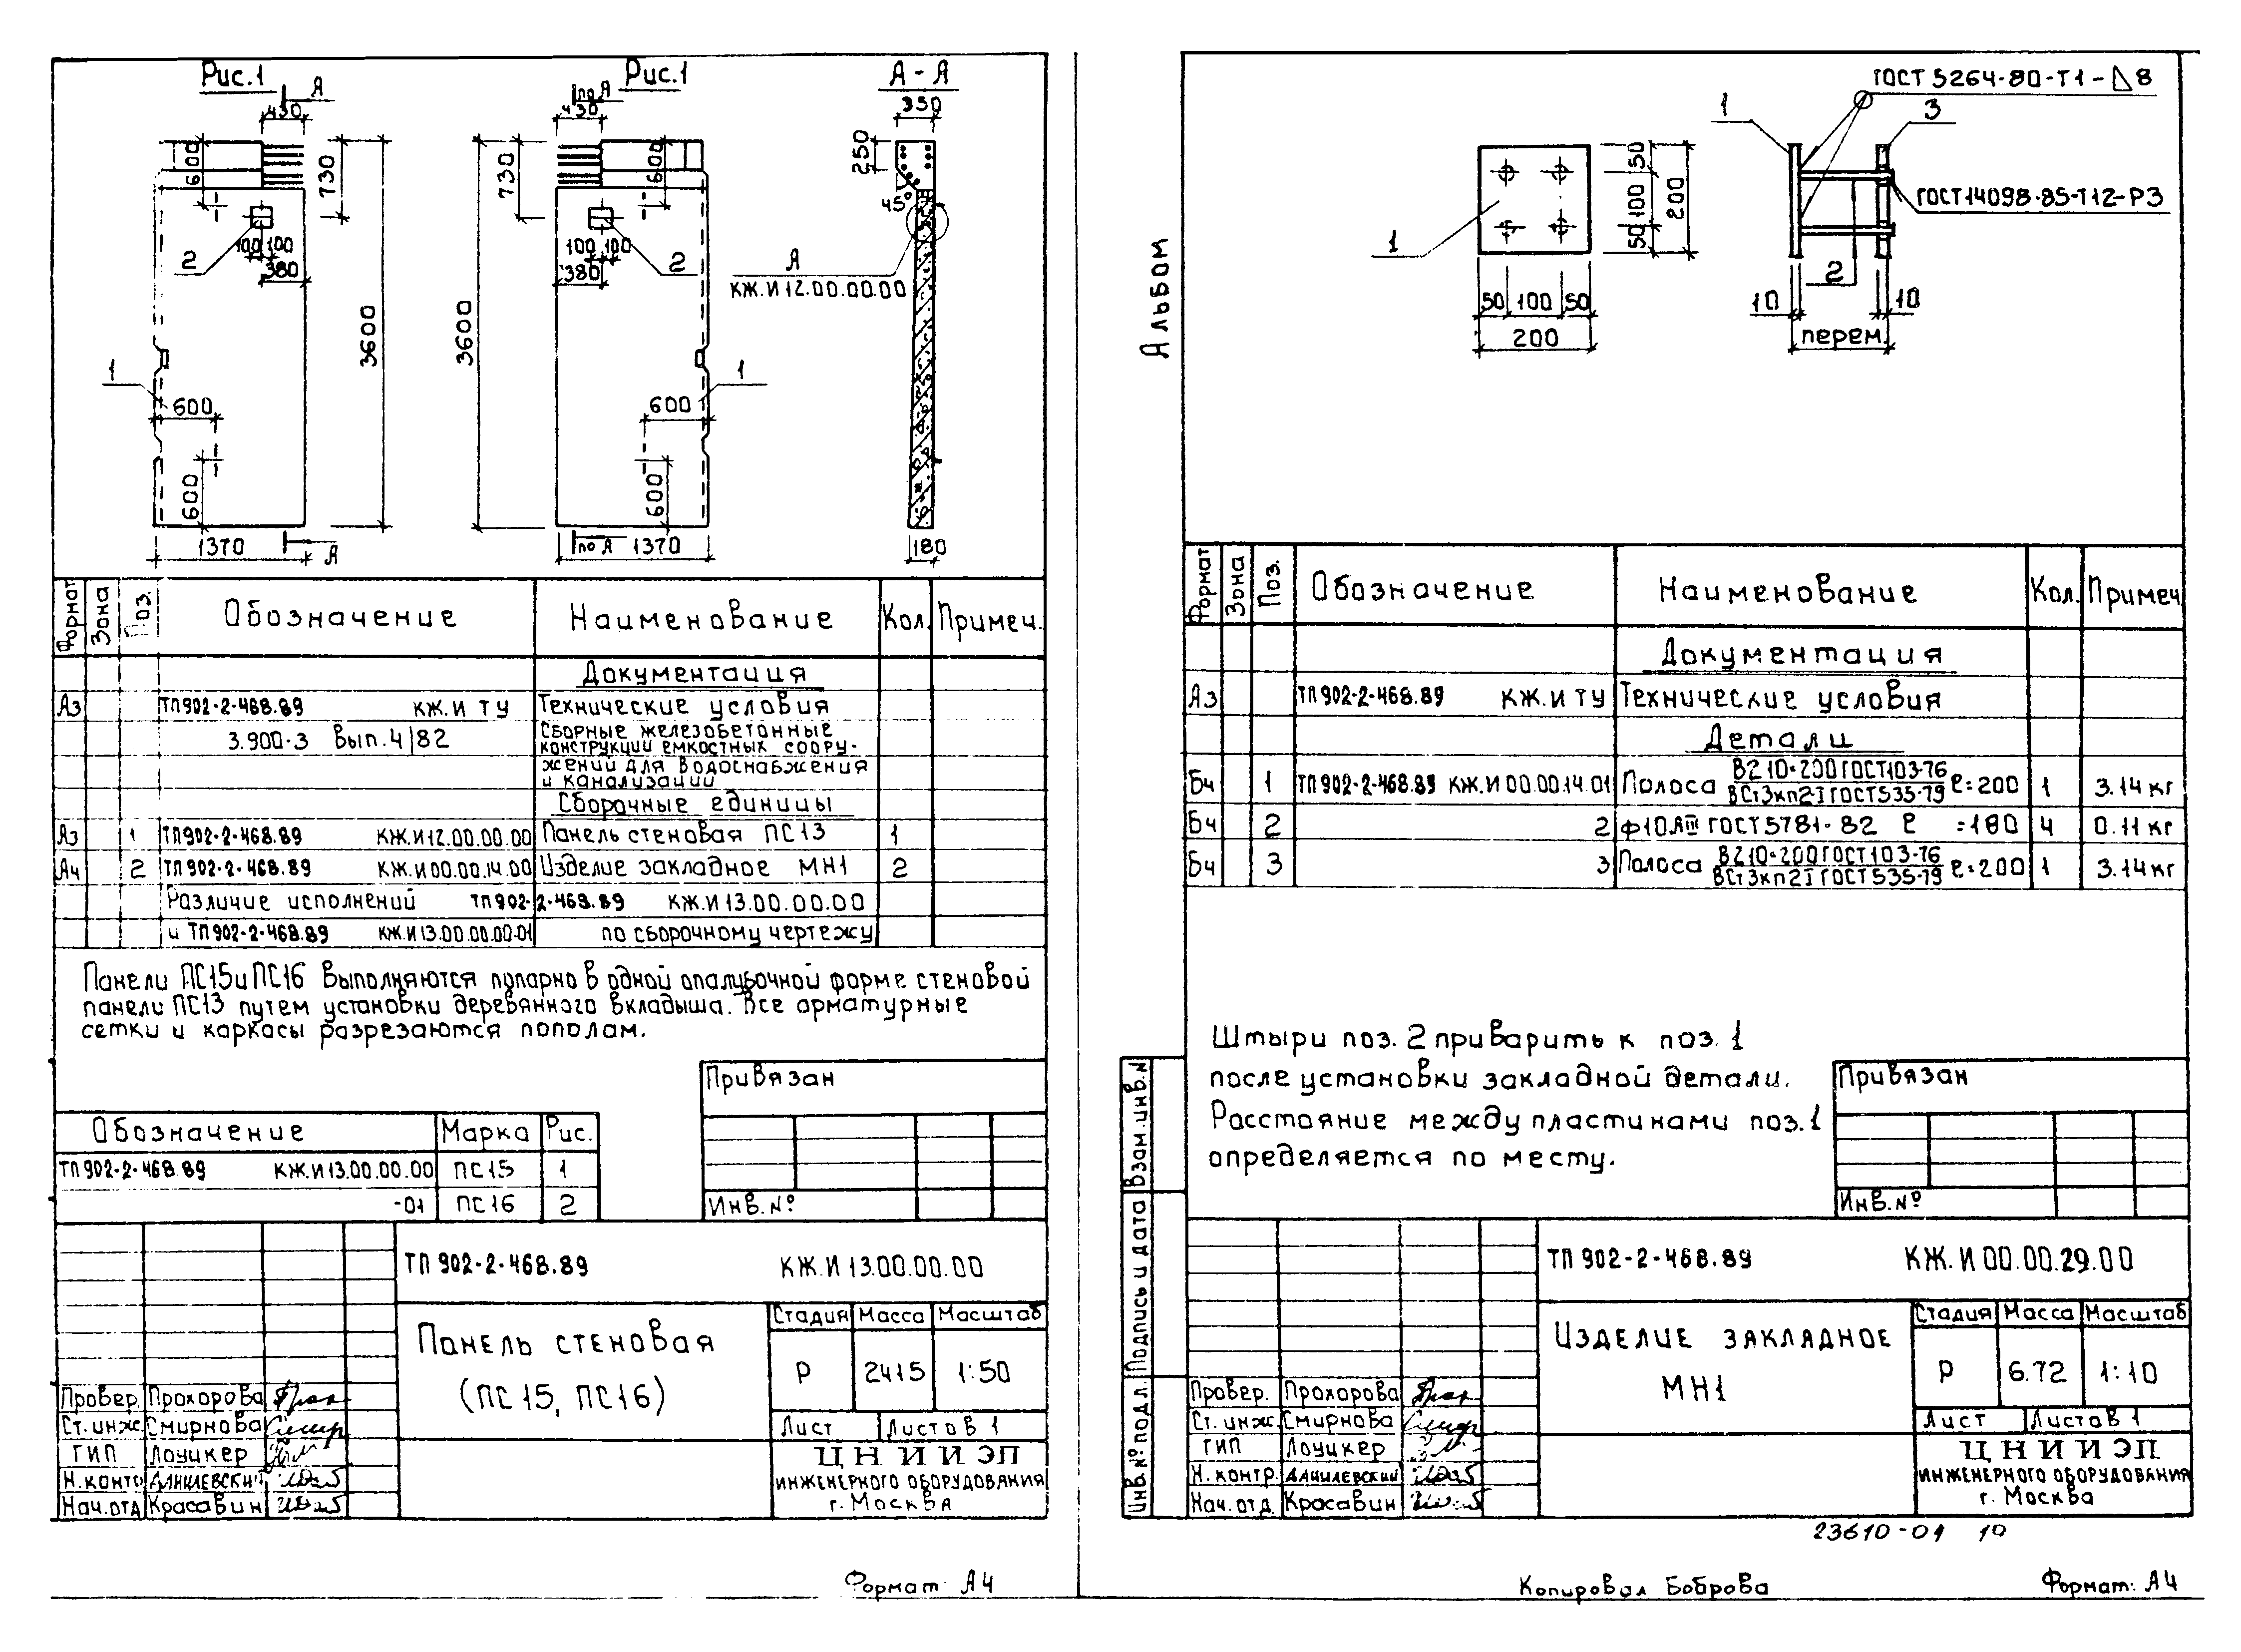 Рис.1
А
430
600
730
3600
2
100 100
380
1
600
600
1370
А
Рис.1
по А
430
730
600
3600
100 100
380
2
1
600
600
по А
1370
А - А
350
250
45°
А
КЖ.И12.00.00.00
180
Формат
Зона
Поз.
Обозначение
Наименование
Кол.
Примеч.
Документация
А3 ТП902-2-468.89 КЖ.И ТУ Технические условия
3.900-3 Вып.4/82 Сборные железобетонные
конструкции емкостных соору-
жений для водоснабжения
и канализации
Сборочные единицы
А3 1 ТП902-2-468.89 КЖ.И12.00.00.00 Панель стеновая ПС13 1
А4 2 ТП902-2-468.89 КЖ.И00.00.14.00 Изделие закладное МН1 2
Различие исполнений ТП902-2-468.89 КЖ.И13.00.00.00
и ТП902-2-468.89 КЖ.И13.00.00.00-01 по сборочному чертежу
Панели ПС15 и ПС16 выполняются попарно в одной опалубочной форме стеновой
панели ПС13 путем установки деревянного вкладыша. Все арматурные
сетки и каркасы разрезаются пополам.
Привязан
Инв.№
Обозначение Марка Рис.
ТП902-2-468.89 КЖ.И13.00.00.00 ПС15 1
-01 ПС16 2
ТП 902-2-468.89 КЖ.И 13.00.00.00
Панель стеновая
(ПС 15, ПС16)
Стадия Масса Масштаб
Р 2415 1:50
Лист Листов 1
ЦНИИЭП
ИНЖЕНЕРНОГО ОБОРУДОВАНИЯ
г. Москва
Провер. Прохорова
Ст. инж. Смирнова
ГИП Лоуцкер
Н.контр. Данилевский
Нач.отд. Красавин
Формат А4
Альбом
1
50 100 50
200
50 100 50
200
ГОСТ 5264-80-Т1-△8
1
3
ГОСТ14098-85-Т12-Р3
2
10
10
перем.
Формат
Зона
Поз.
Обозначение
Наименование
Кол.
Примеч
Документация
А3 ТП902-2-468.89 КЖ.И ТУ Технические условия
Детали
Бч 1 ТП902-2-468.89 КЖ.И00.00.14.01 Полоса В2 10×200 ГОСТ103-76 ℓ=200 1 3.14 кг
ВСт3кп2-I ГОСТ535-79
Бч 2 2 ф10АIII ГОСТ5781-82 ℓ =180 4 0.11 кг
Бч 3 3 Полоса В2 10×200 ГОСТ103-76 ℓ=200 1 3.14 кг
ВСт3кп2-I ГОСТ535-79
Штыри поз. 2 приварить к поз. 1
после установки закладной детали.
Расстояние между пластинами поз.1
определяется по месту.
Привязан
Инв.№
Взам.инв.№
Подпись и дата
Инв.№подл.
ТП 902-2-468.89 КЖ.И 00.00.29.00
Изделие закладное
МН1
Стадия Масса Масштаб
Р 6.72 1:10
Лист Листов 1
ЦНИИЭП
ИНЖЕНЕРНОГО ОБОРУДОВАНИЯ
г. Москва
Провер. Прохорова
Ст. инж. Смирнова
ГИП Лоуцкер
Н.контр. Данилевский
Нач.отд. Красавин
23610-01 10
Копировал Боброва
Формат: А4